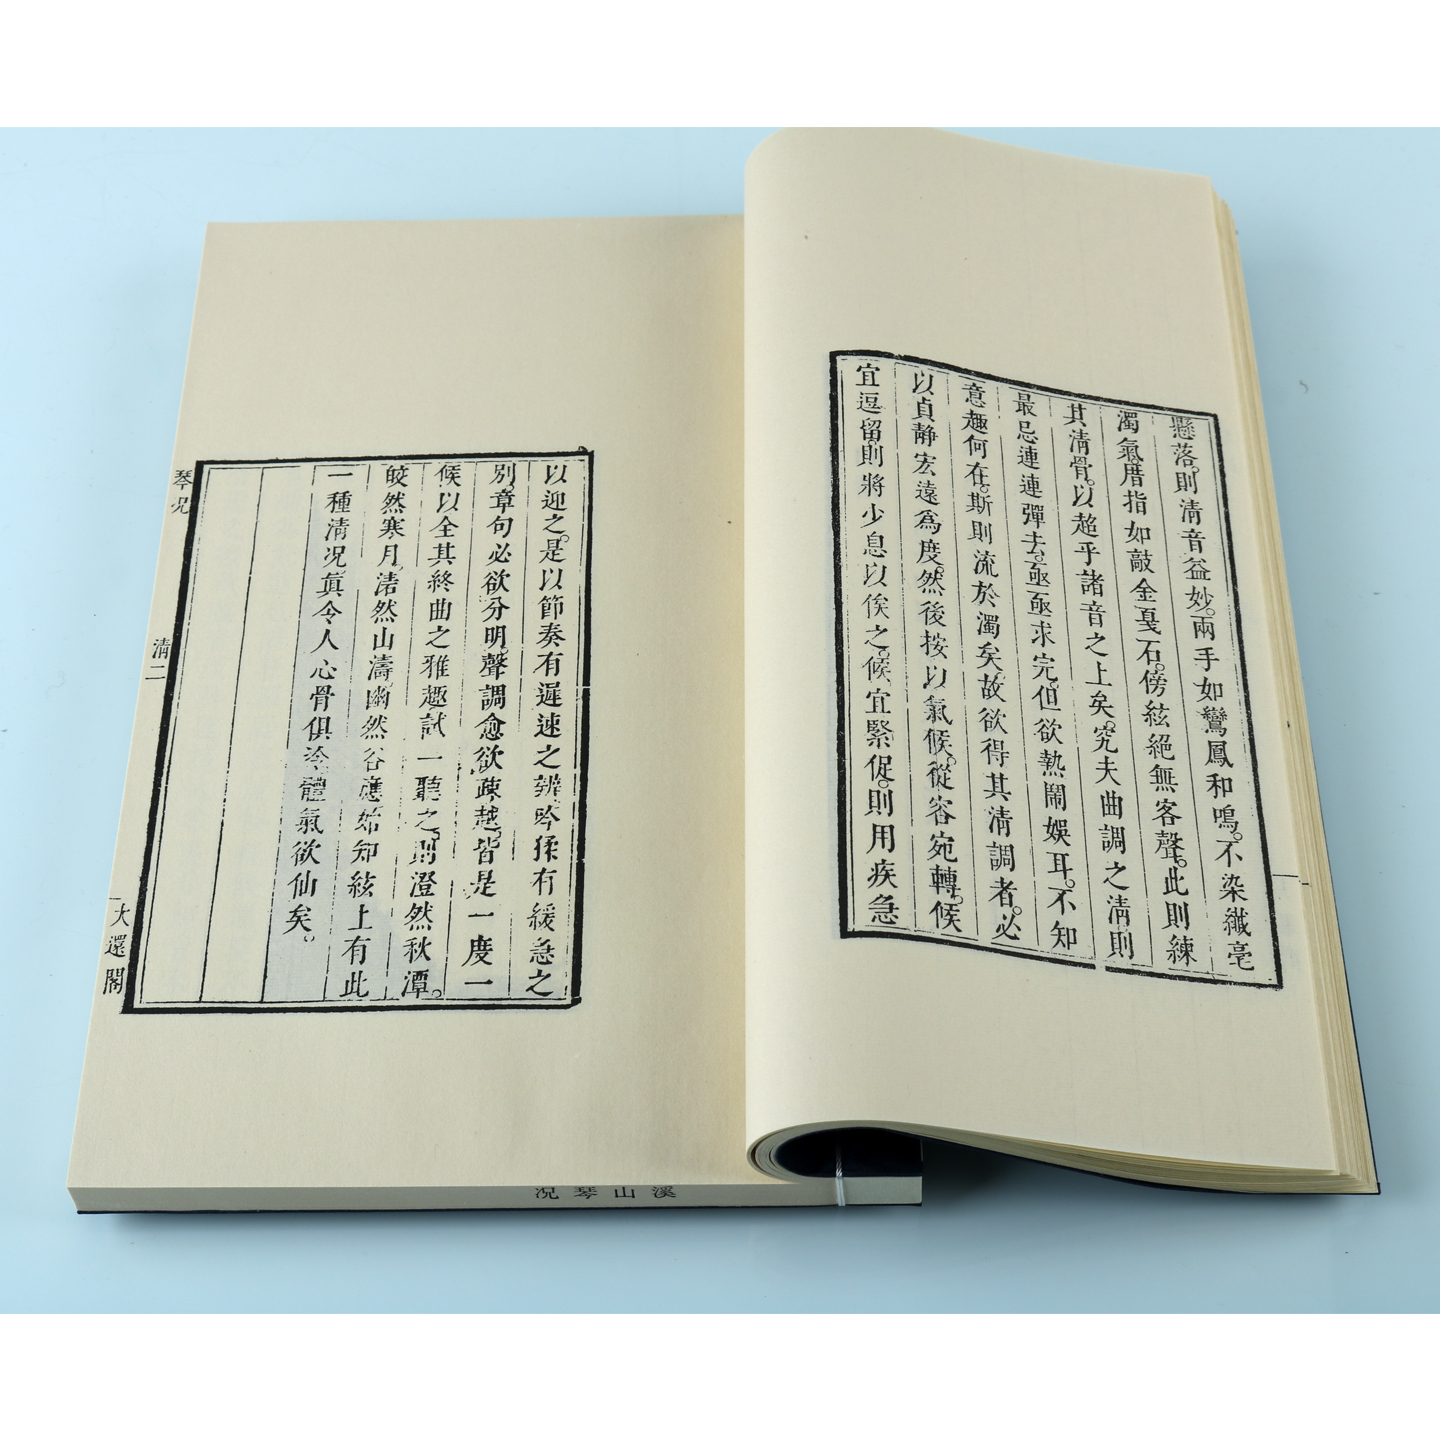 懸落。則清音益妙。兩手如鸞鳳和鳴。不染纖毫
濁氣。厝指如敲金戛石。傍絃絕無客聲。此則練
其清骨。以超乎諸音之上矣。究夫曲調之清。則
最忌連連彈去。亟亟求完。但欲熱鬧娛耳。不知
意趣何在。斯則流於濁矣。故欲得其清調者。必
以貞靜宏遠爲度。然後按以氣候。從容宛轉。候
宜逗留。則將少息以俟之。候宜緊促。則用疾急
以迎之。是以節奏有遲速之辨。吟猱有緩急之
別。章句必欲分明。聲調愈欲疎越。皆是一度一
候。以全其終曲之雅趣。試一聽之。則澄然秋潭。
皎然寒月。湱然山濤。幽然谷應。始知絃上有此
一種清况。眞令人心骨俱冷。體氣欲仙矣。
琴况
清二
大還閣
溪山琴况